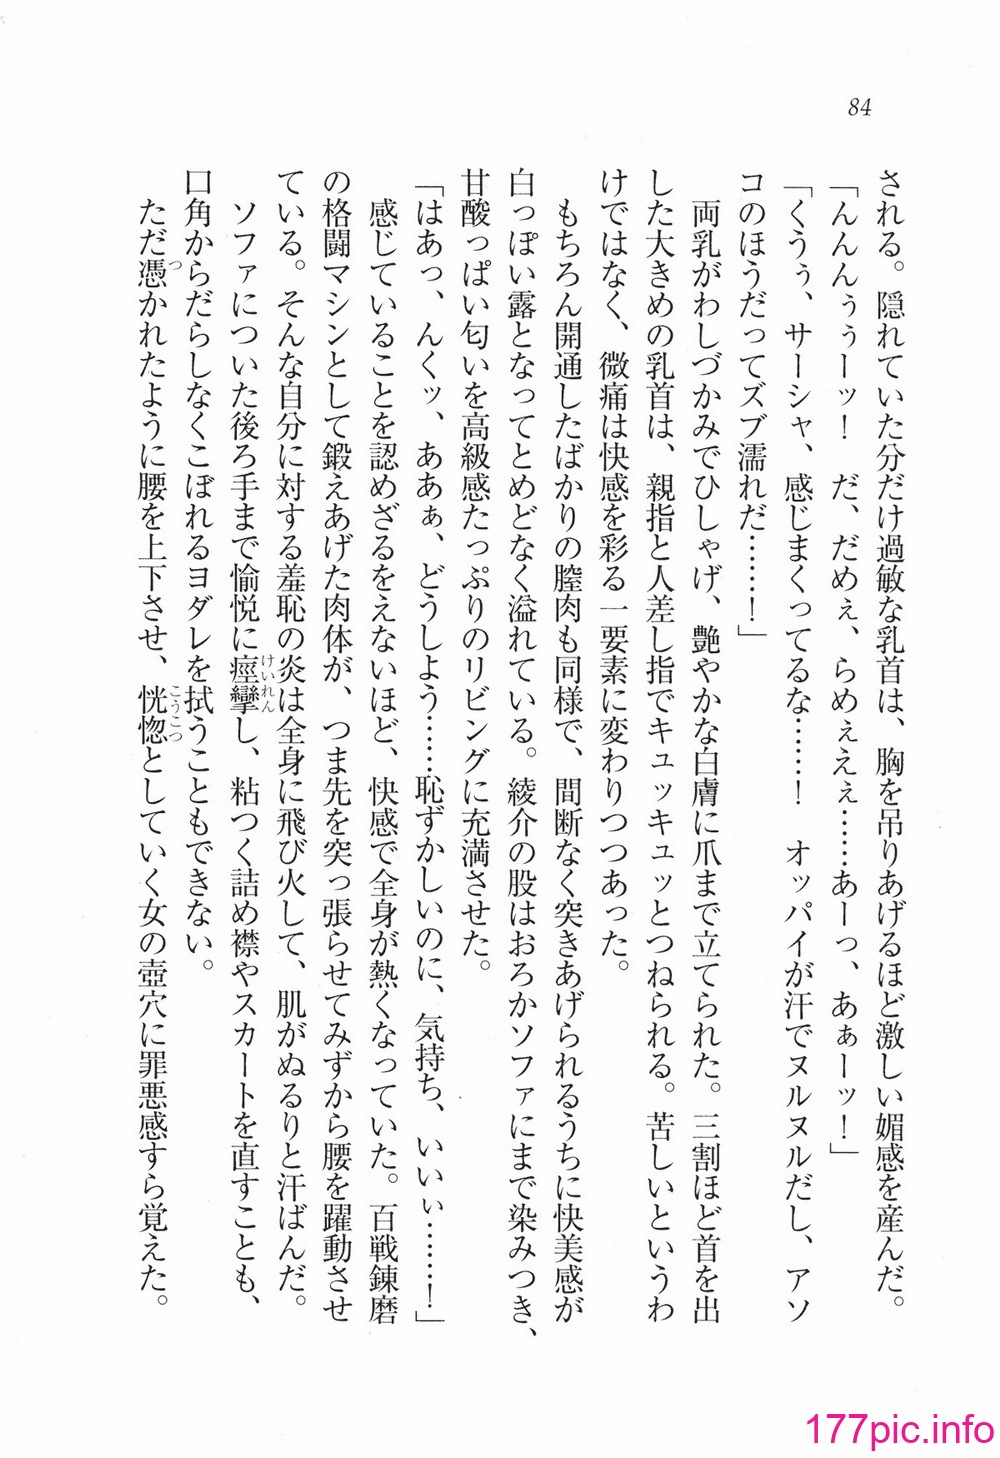 84
される。隠れていた分だけ過敏な乳首は、胸を吊りあげるほど激しい媚感を産んだ。
「んんんぅぅーッ！　だ、だめぇ、らめぇえぇ……あーっ、あぁーッ！」
「くうぅ、サーシャ、感じまくってるな……！　オッパイが汗でヌルヌルだし、アソ
コのほうだってズブ濡れだ……！」
両乳がわしづかみでひしゃげ、艶やかな白膚に爪まで立てられた。三割ほど首を出
した大きめの乳首は、親指と人差し指でキュッキュッとつねられる。苦しいというわ
けではなく、微痛は快感を彩る一要素に変わりつつあった。
もちろん開通したばかりの膣肉も同様で、間断なく突きあげられるうちに快美感が
白っぽい露となってとめどなく溢れている。綾介の股はおろかソファにまで染みつき、
甘酸っぱい匂いを高級感たっぷりのリビングに充満させた。
「はあっ、んくッ、ああぁ、どうしよう……恥ずかしいのに、気持ち、いいぃ……！」
感じていることを認めざるをえないほど、快感で全身が熱くなっていた。百戦錬磨
の格闘マシンとして鍛えあげた肉体が、つま先を突っ張らせてみずから腰を躍動させ
ている。そんな自分に対する羞恥の炎は全身に飛び火して、肌がぬるりと汗ばんだ。
ソファについた後ろ手まで愉悦に痙攣けいれんし、粘つく詰め襟やスカートを直すことも、
口角からだらしなくこぼれるヨダレを拭うこともできない。
ただ憑つかれたように腰を上下させ、恍惚こうこつとしていく女の壺穴に罪悪感すら覚えた。
177pic.info